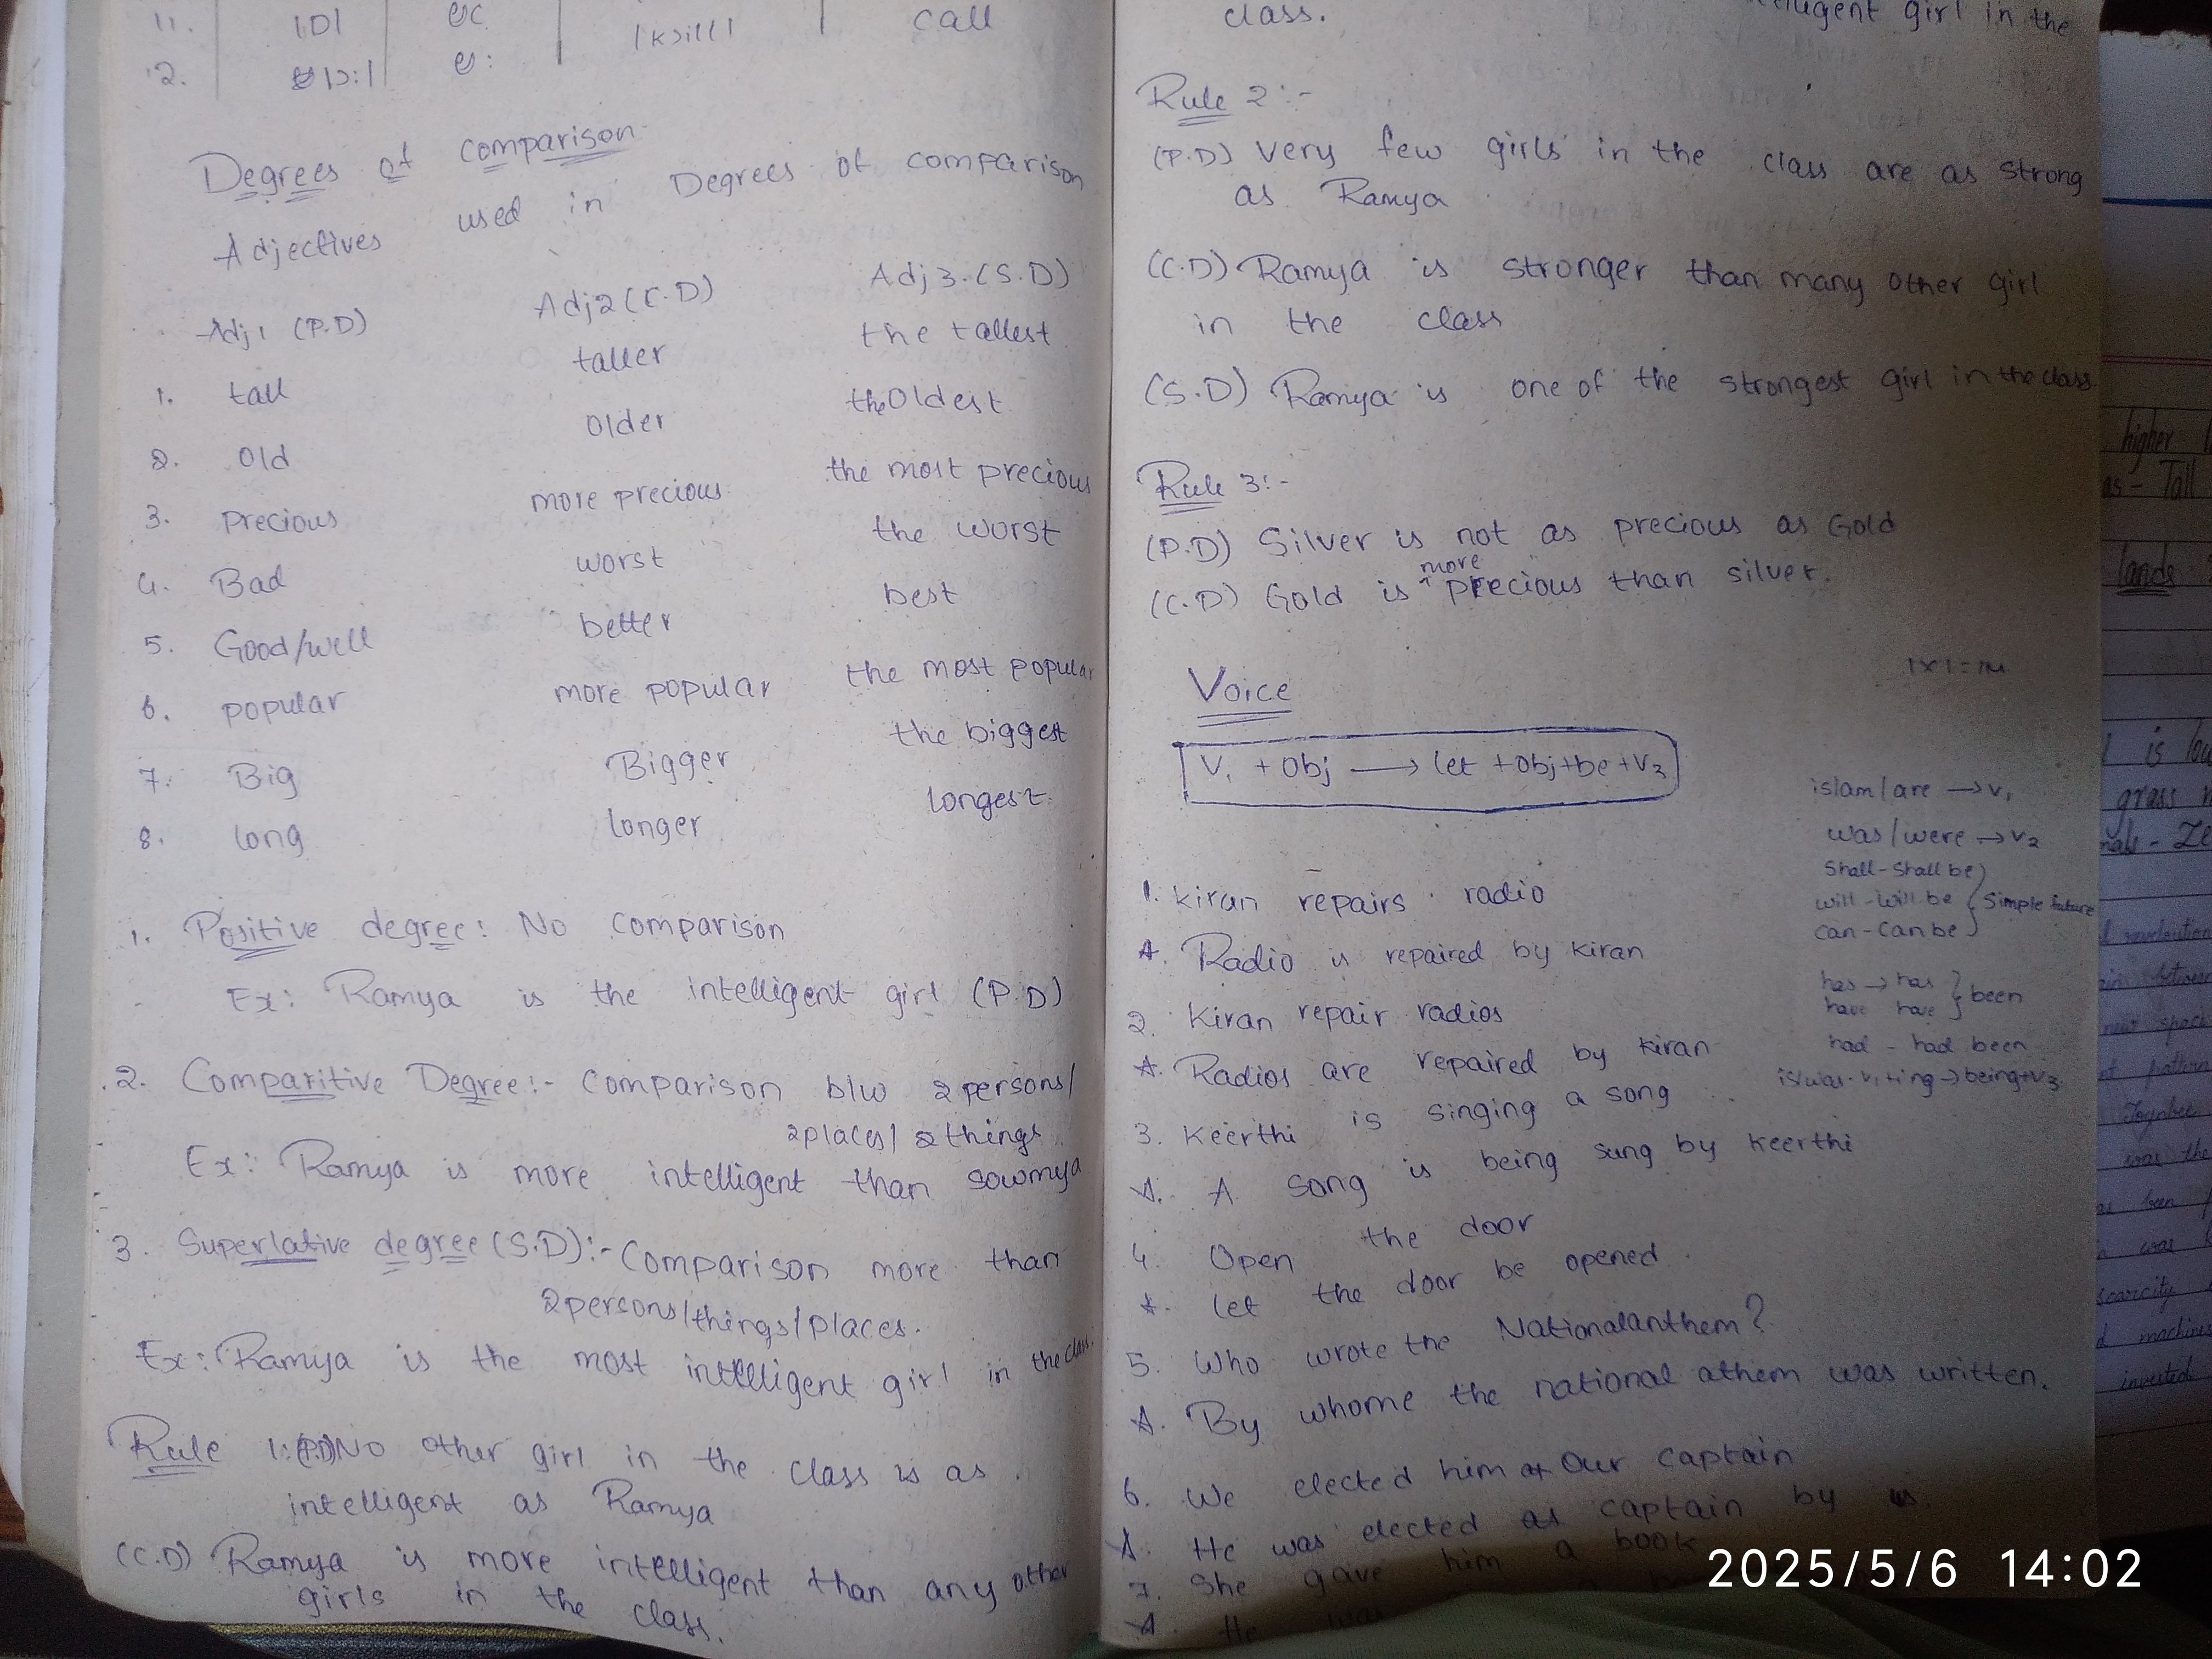 11. |ɒ| |kɔ:ll| call
12. |ɔ:|
Degrees of comparison
Adjectives used in Degrees of comparison
Adj1 (P.D) Adj2 (C.D) Adj3. (S.D)
1. tall taller the tallest
2. Old Older the Oldest
3. Precious more precious the most precious
4. Bad worst the worst
5. Good/well better best
6. popular more popular the most popular
7. Big Bigger the biggest
8. long longer longest.
1. Positive degree: No comparison
Ex: Ramya is the intelligent girl (P.D)
2. Comparitive Degree:- Comparison b/w 2 persons/
2places/ 2 things
Ex: Ramya is more intelligent than sowmya
3. Superlative degree (S.D):- Comparison more than
2persons/things/places.
Ex: Ramya is the most intelligent girl in the class.
Rule 1:(P.D) No other girl in the class is as
intelligent as Ramya
(C.D) Ramya is more intelligent than any other
girls in the class.
girl in the
class.
Rule 2:-
(P.D) Very few girls in the class are as strong
as Ramya
(C.D) Ramya is stronger than many other girl
in the class
(S.D) Ramya is one of the strongest girl in the class
Rule 3:-
(P.D) Silver is not as precious as Gold
(C.D) Gold is more precious than silver.
Voice
V1 + Obj → let + Obj + be + V3
is/am/are → V1
was/were → V2
Shall - Shall be
will - will be } Simple future
can - can be
has → has } been
have have
had - had been
is/was - V1 + ing → being + V3
1. Kiran repairs radio
A. Radio is repaired by Kiran
2. Kiran repair radios
A. Radios are repaired by Kiran
3. Keerthi is singing a song
A. A song is being sung by Keerthi
4. Open the door
A. Let the door be opened.
5. Who wrote the Nationalanthem?
A. By whome the national athem was written.
6. We elected him as Our captain
A. He was elected as captain by us.
7. She gave him a book
A. He was
higher
as - Tall
lands
is
grass
revolution
space
pattern
Toynbee
was the
been
was
scarcity
machines
invented
2025/5/6 14:02